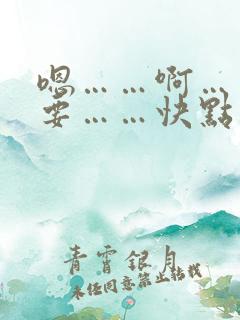 嗯……啊…
要……快點
青霄銀月
未任同意禁止轉載